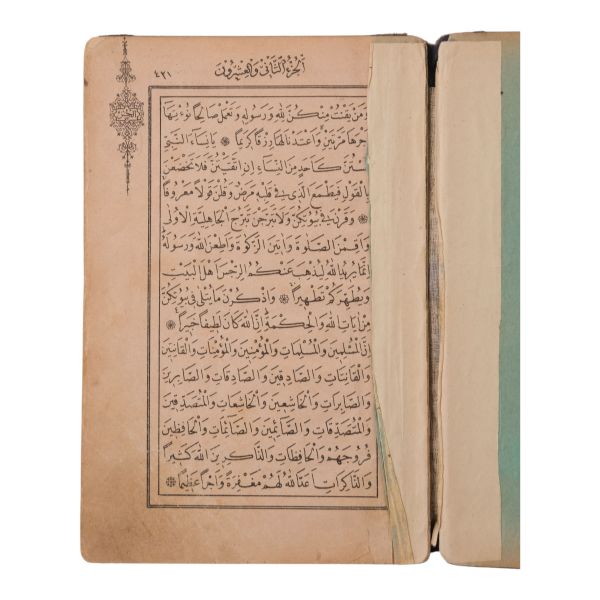 الجزء الثاني والعشرون
٤٢١
وَمَنْ يَقْنُتْ مِنْكُنَّ لِلّٰهِ وَرَسُولِهِ وَتَعْمَلْ صَالِحًا نُؤْتِهَا
اَجْرَهَا مَرَّتَيْنِ وَاَعْتَدْنَا لَهَا رِزْقًا كَرِيمًا ❁ يَا نِسَاءَ النَّبِيِّ
لَسْتُنَّ كَاَحَدٍ مِنَ النِّسَاءِ اِنِ اتَّقَيْتُنَّ فَلَا تَخْضَعْنَ
بِالْقَوْلِ فَيَطْمَعَ الَّذِي فِي قَلْبِهِ مَرَضٌ وَقُلْنَ قَوْلًا مَعْرُوفًا
❁ وَقَرْنَ فِي بُيُوتِكُنَّ وَلَا تَبَرَّجْنَ تَبَرُّجَ الْجَاهِلِيَّةِ الْاُولٰى
وَاَقِمْنَ الصَّلٰوةَ وَاٰتِينَ الزَّكٰوةَ وَاَطِعْنَ اللّٰهَ وَرَسُولَهُ
اِنَّمَا يُرِيدُ اللّٰهُ لِيُذْهِبَ عَنْكُمُ الرِّجْسَ اَهْلَ الْبَيْتِ
وَيُطَهِّرَكُمْ تَطْهِيرًا ❁ وَاذْكُرْنَ مَا يُتْلٰى فِي بُيُوتِكُنَّ
مِنْ اٰيَاتِ اللّٰهِ وَالْحِكْمَةِ اِنَّ اللّٰهَ كَانَ لَطِيفًا خَبِيرًا ❁
اِنَّ الْمُسْلِمِينَ وَالْمُسْلِمَاتِ وَالْمُؤْمِنِينَ وَالْمُؤْمِنَاتِ وَالْقَانِتِينَ
وَالْقَانِتَاتِ وَالصَّادِقِينَ وَالصَّادِقَاتِ وَالصَّابِرِينَ
وَالصَّابِرَاتِ وَالْخَاشِعِينَ وَالْخَاشِعَاتِ وَالْمُتَصَدِّقِينَ
وَالْمُتَصَدِّقَاتِ وَالصَّائِمِينَ وَالصَّائِمَاتِ وَالْحَافِظِينَ
فُرُوجَهُمْ وَالْحَافِظَاتِ وَالذَّاكِرِينَ اللّٰهَ كَثِيرًا
وَالذَّاكِرَاتِ اَعَدَّ اللّٰهُ لَهُمْ مَغْفِرَةً وَاَجْرًا عَظِيمًا ❁